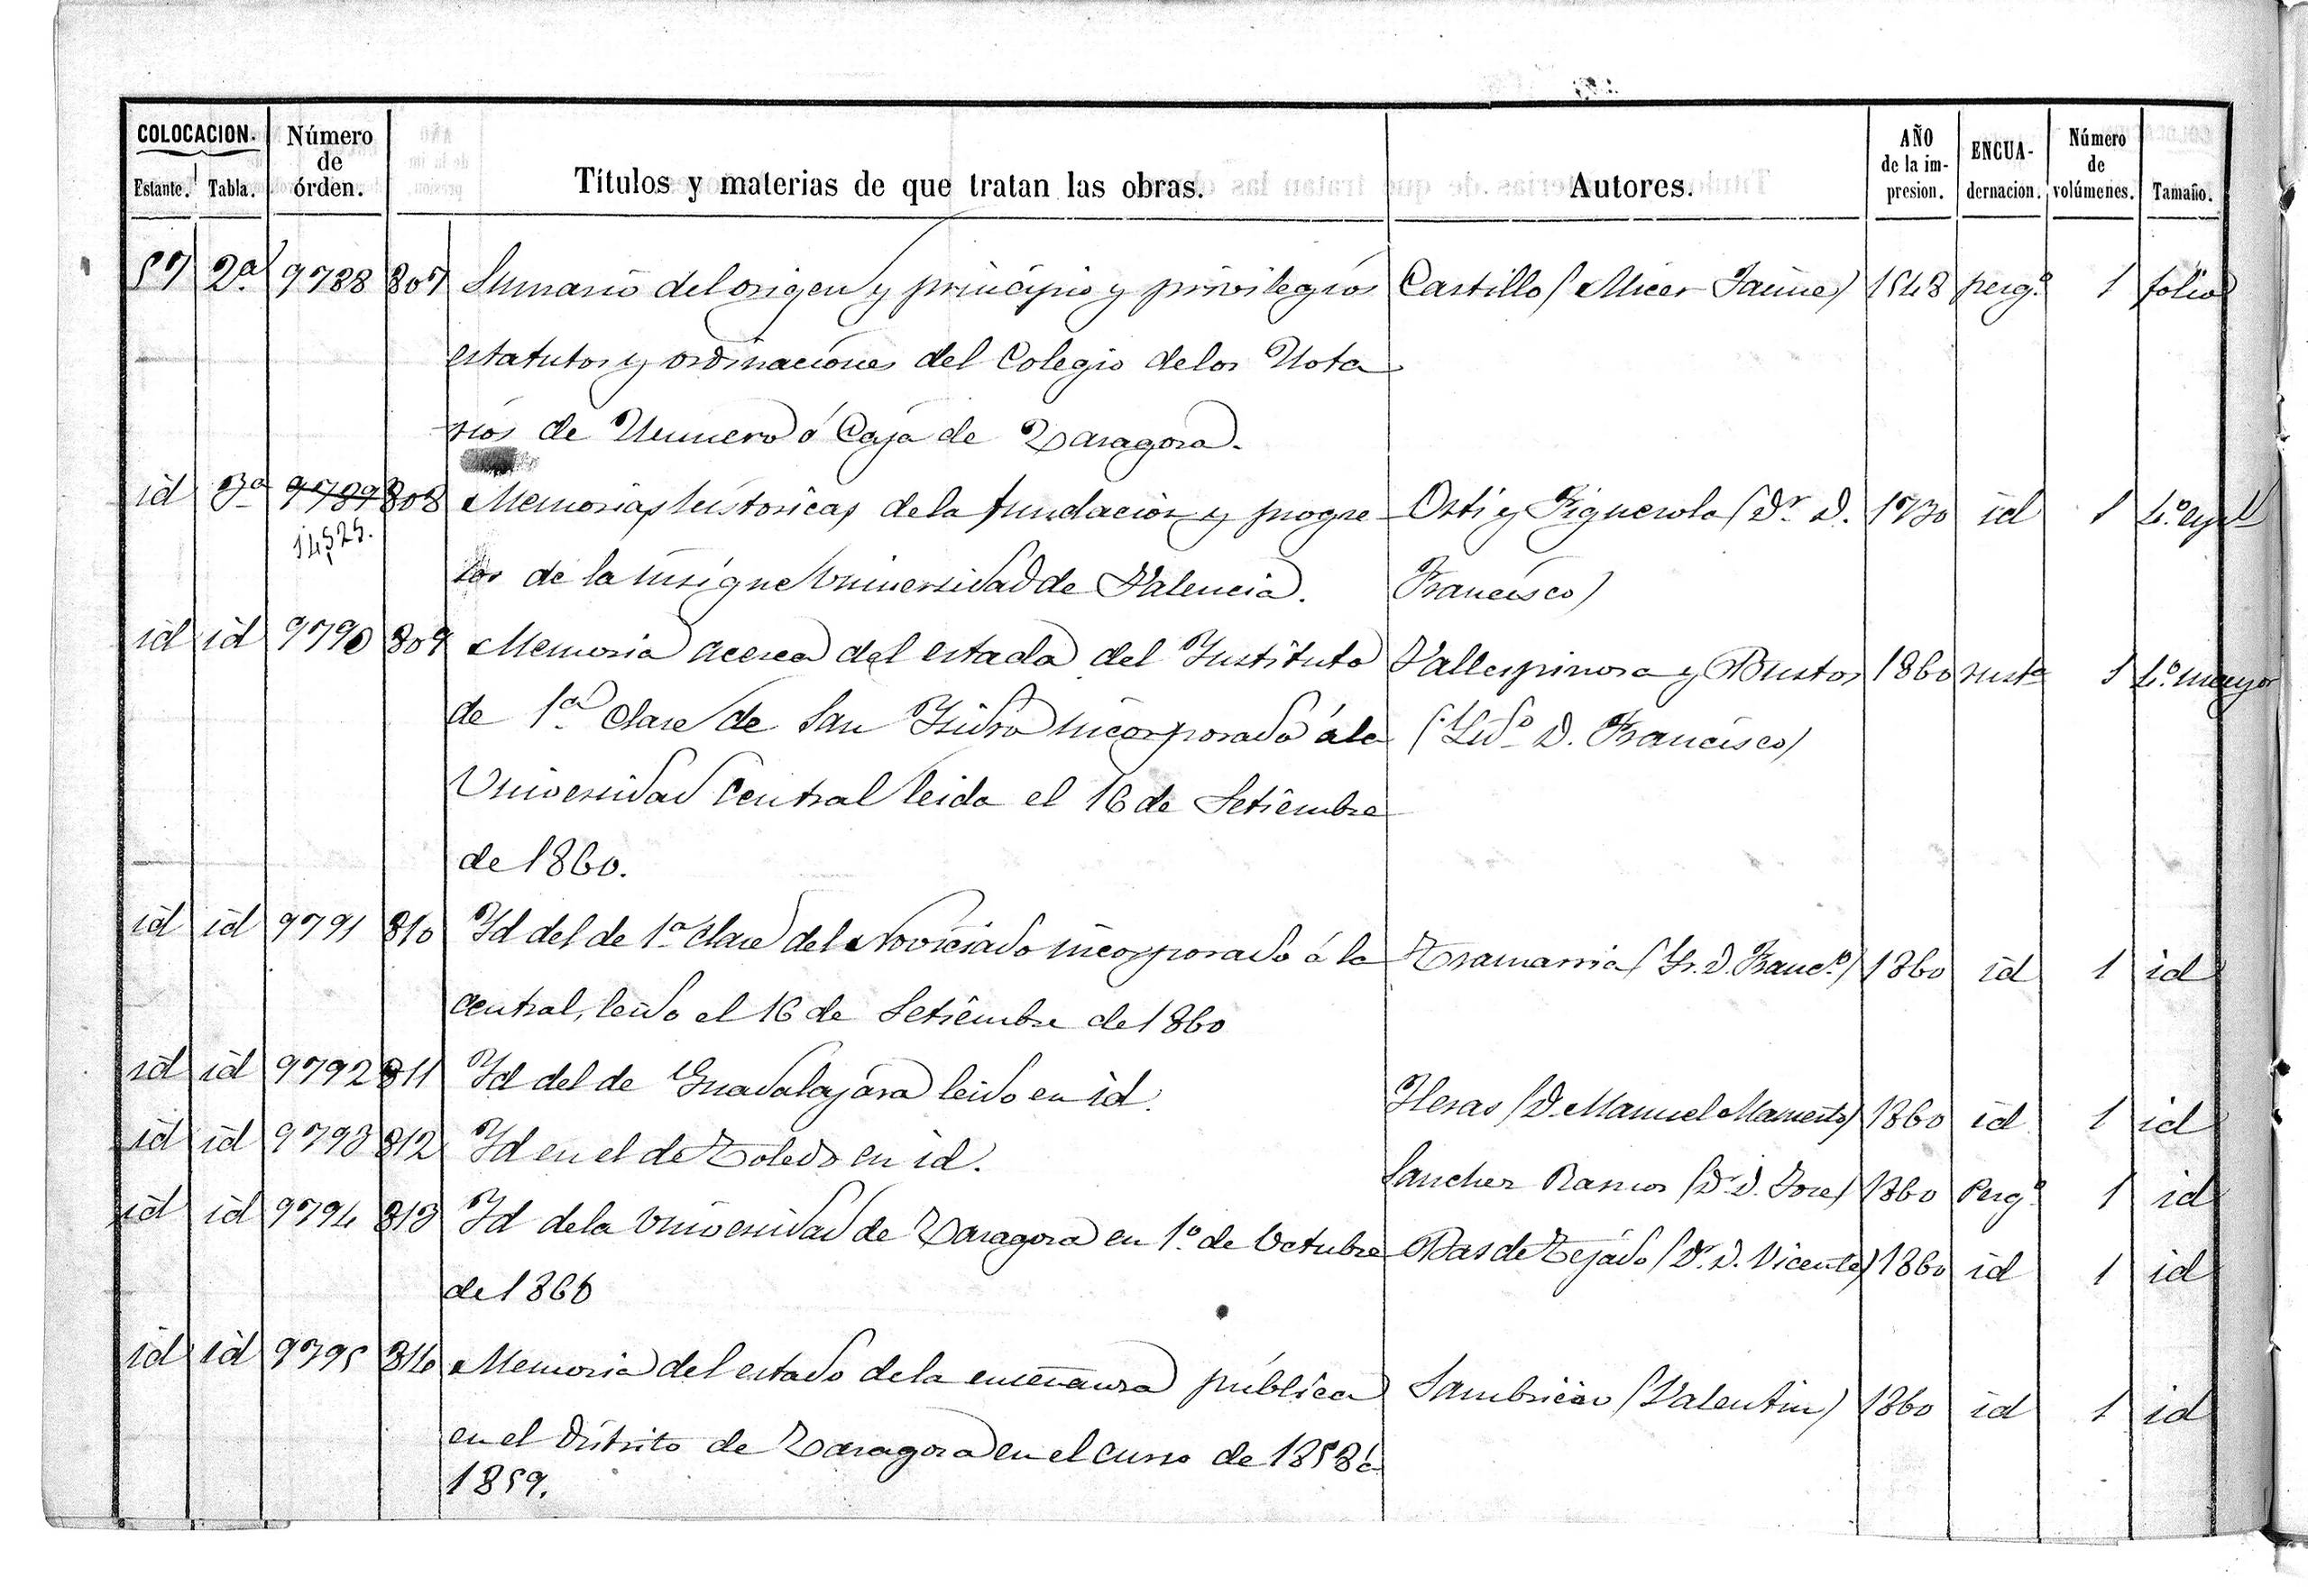 COLOCACION.
Estante. Tabla. Número de órden. Títulos y materias de que tratan las obras. Autores. AÑO de la impresion. ENCUADERNACION. Número de volúmenes. Tamaño.
57 2ª 9788 807 Sumario del origen y principio y privilegios Castillo (Micer Jaime) 1548 pergº 1 folio
estatutos y ordinaciones del Colegio de los Nota
rios de Numero ó Caja de Zaragoza.
id 3ª 9789 808 Memorias historicas de la fundacion y progre Orti y Figuerola (Dr. D. 1730 id 1 4º
14525.
sos de la insigne Universidad de Valencia. Francisco)
id id 9790 809 Memoria acerca del estado del Instituto Vallespinosa y Bustos 1860 rustª 1 4º mayor
de 1ª clase de San Isidro incorporado á la (Lidº D. Francisco)
Universidad Central leida el 16 de Setiembre
de 1860.
id id 9791 810 Id del de 1ª clase del Noviciado incorporado á la Tramarria (Sr. D. Francº) 1860 id 1 id
central, leido el 16 de Setiembre de 1860
id id 9792 811 Id del de Guadalajara leido en id. Heras (D. Manuel Mamerto) 1860 id 1 id
id id 9793 812 Id en el de Toledo en id. Sanchez Ramos (Dr. D. Jose) 1860 Pergº 1 id
id id 9794 813 Id de la Universidad de Zaragoza en 1º de Octubre Bas de Tejado (Dr. D. Vicente) 1860 id 1 id
de 1860
id id 9795 814 Memoria del estado de la enseñanza pública Sambricio (Valentin) 1860 id 1 id
en el distrito de Zaragoza en el curso de 1858 á
1859.